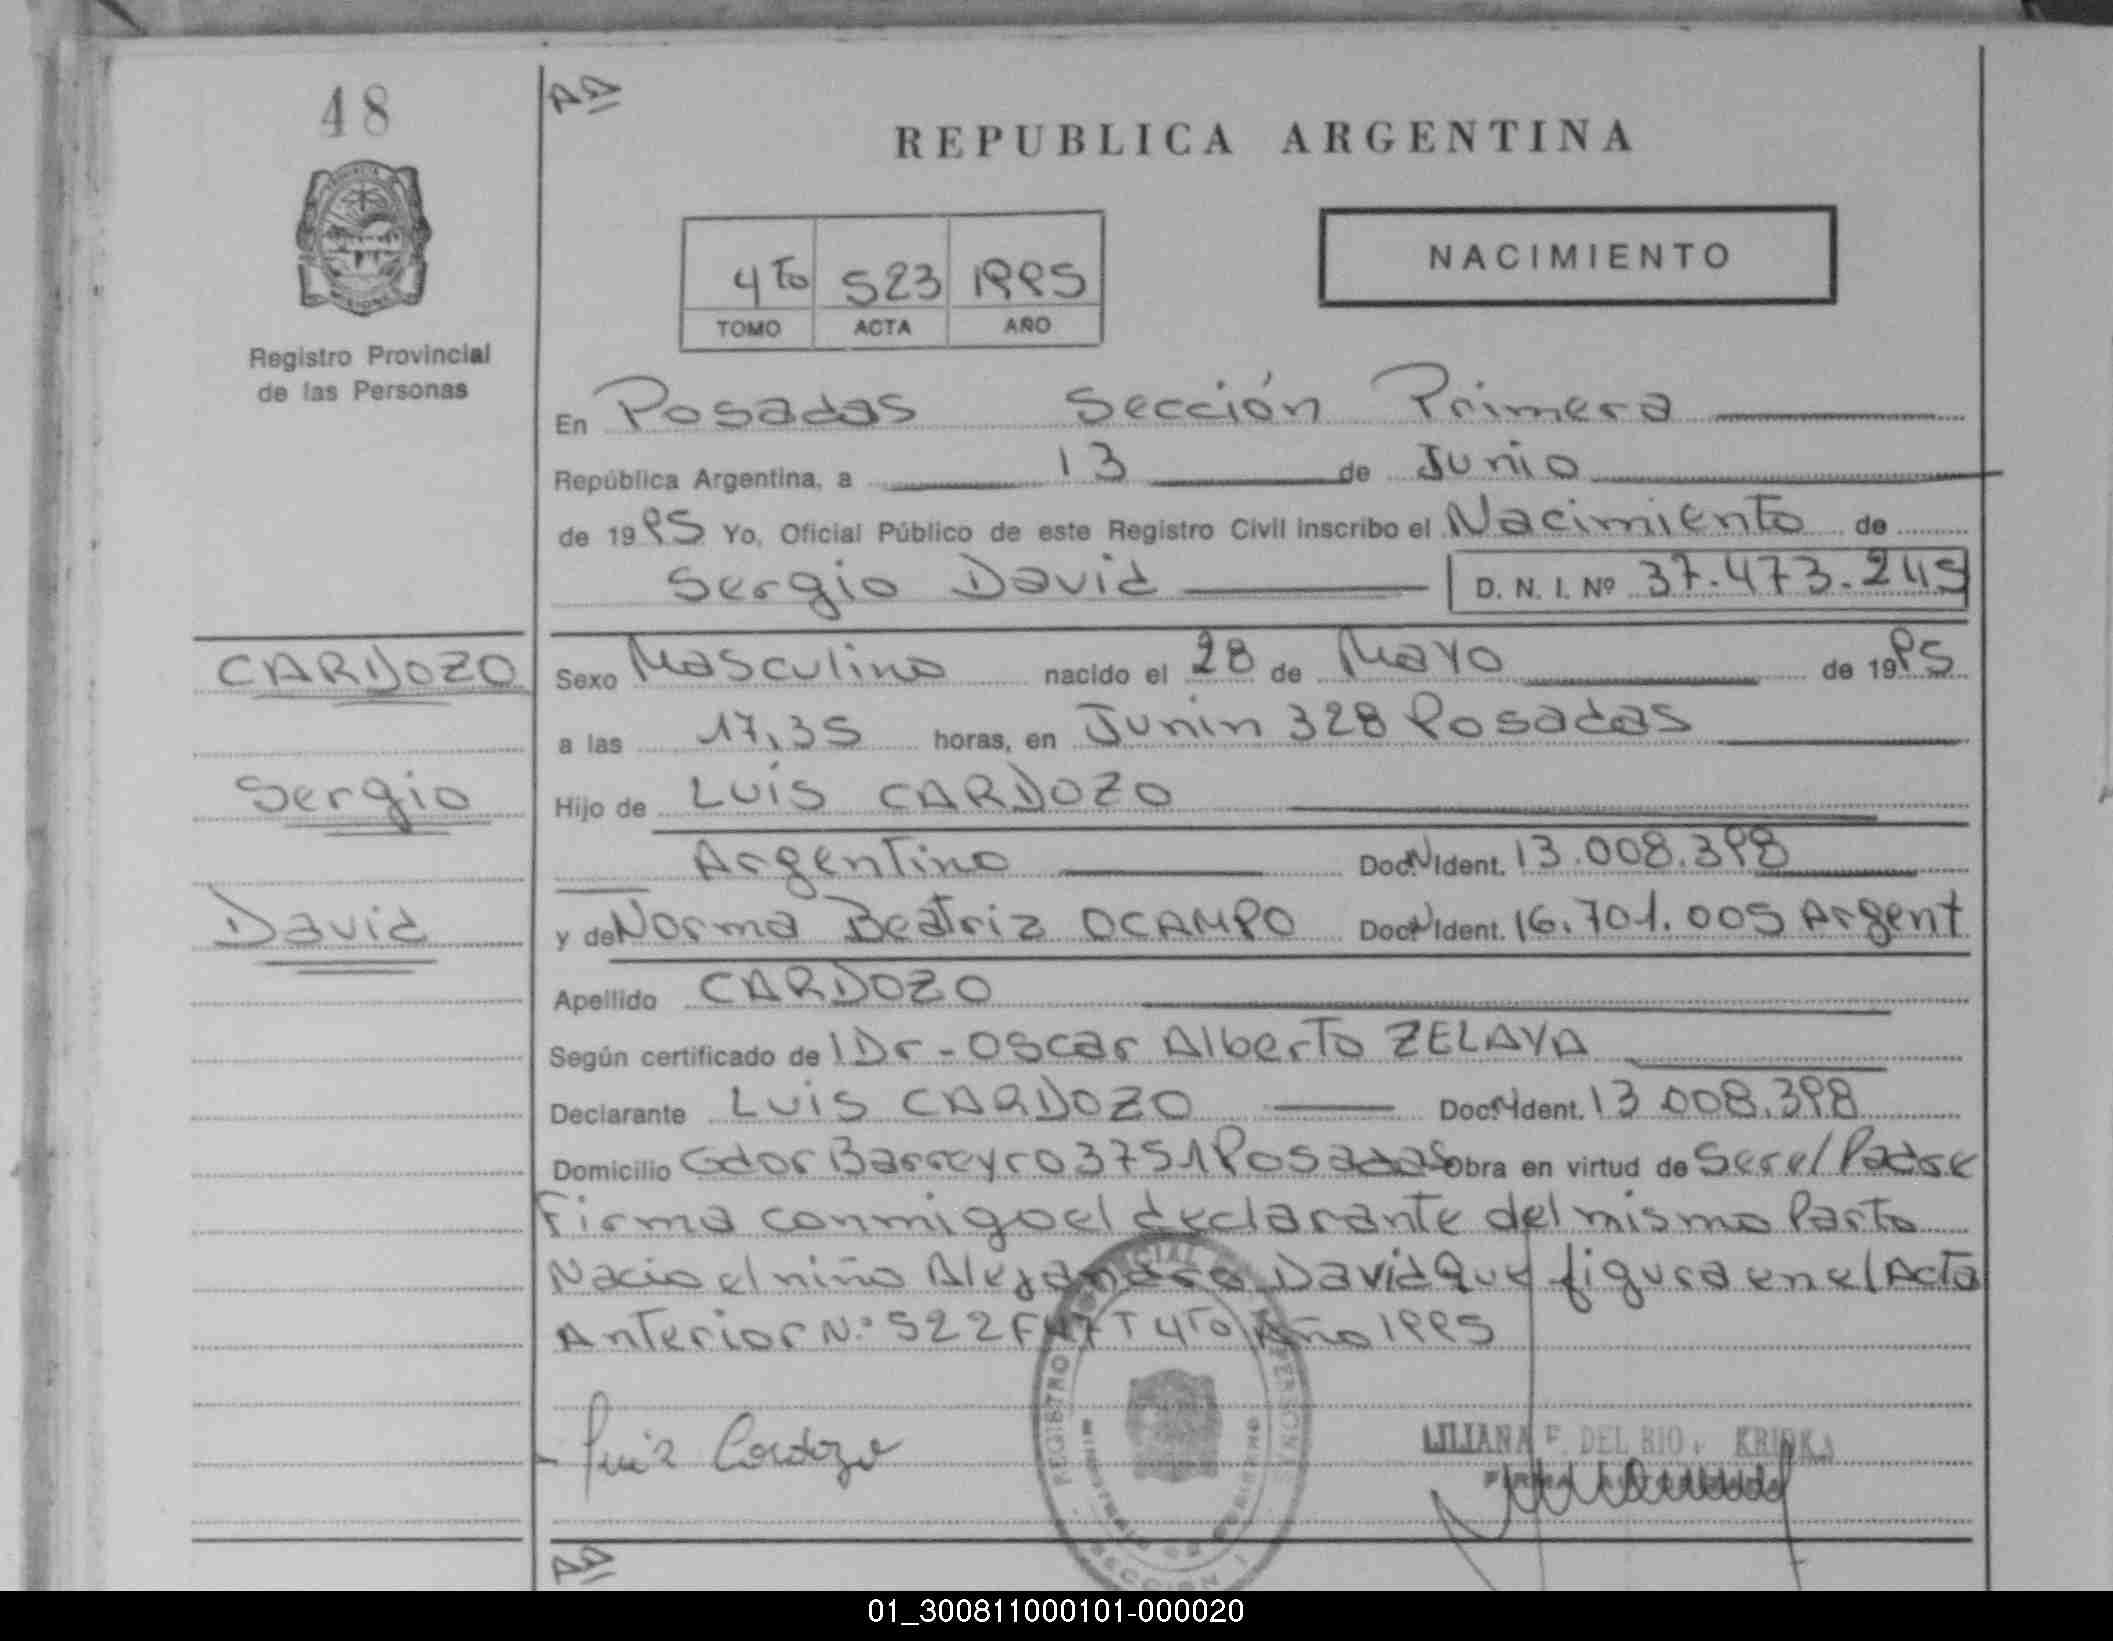 48
AD
REPUBLICA ARGENTINA
NACIMIENTO
4to 523 1995
TOMO ACTA AÑO
Registro Provincial
de las Personas
En Posadas Sección Primera
República Argentina, a 13 de Junio
de 1995 Yo, Oficial Público de este Registro Civil inscribo el Nacimiento de
Sergio David D. N. I. Nº 37.473.245
CARDOZO
Sergio
David
Sexo Masculino nacido el 28 de Mayo de 1995
a las 17,35 horas, en Junin 328 Posadas
Hijo de Luis CARDOZO
Argentino Doc. N Ident. 13.008.398
y de Norma Beatriz OCAMPO Doc. N Ident. 16.701.005 Argent
Apellido CARDOZO
Según certificado de l Dr - Oscar Alberto ZELAYA
Declarante Luis CARDOZO Doc. N Ident. 13.008.398
Domicilio Gdor Barreyro 3751 Posadas Obra en virtud de Ser el Padre
Firma conmigo el declarante del mismo Parto
Nacio el niño Alejandro David Que figura en el Acta
Anterior N.º 522 F 47 T 4to Año 1995
Luis Cardozo
LILIANA F. DEL RIO
REGISTRO PROVINCIAL PERSONAS
MINISTERIO DE GOBIERNO
SECCION 1
AD
01_300811000101-000020